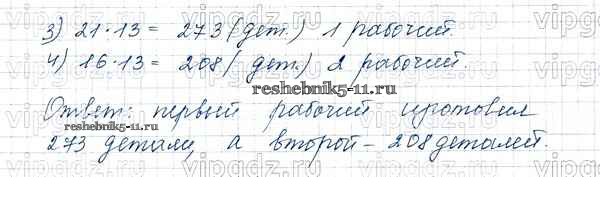 3) 21·13 = 273 (дет.) 1 рабочий.
4) 16·13 = 208 (дет.) 2 рабочий.
reshebnik5-11.ru
Ответ: первый рабочий изготовил
reshebnik5-11.ru
273 детали, а второй – 208 деталей.